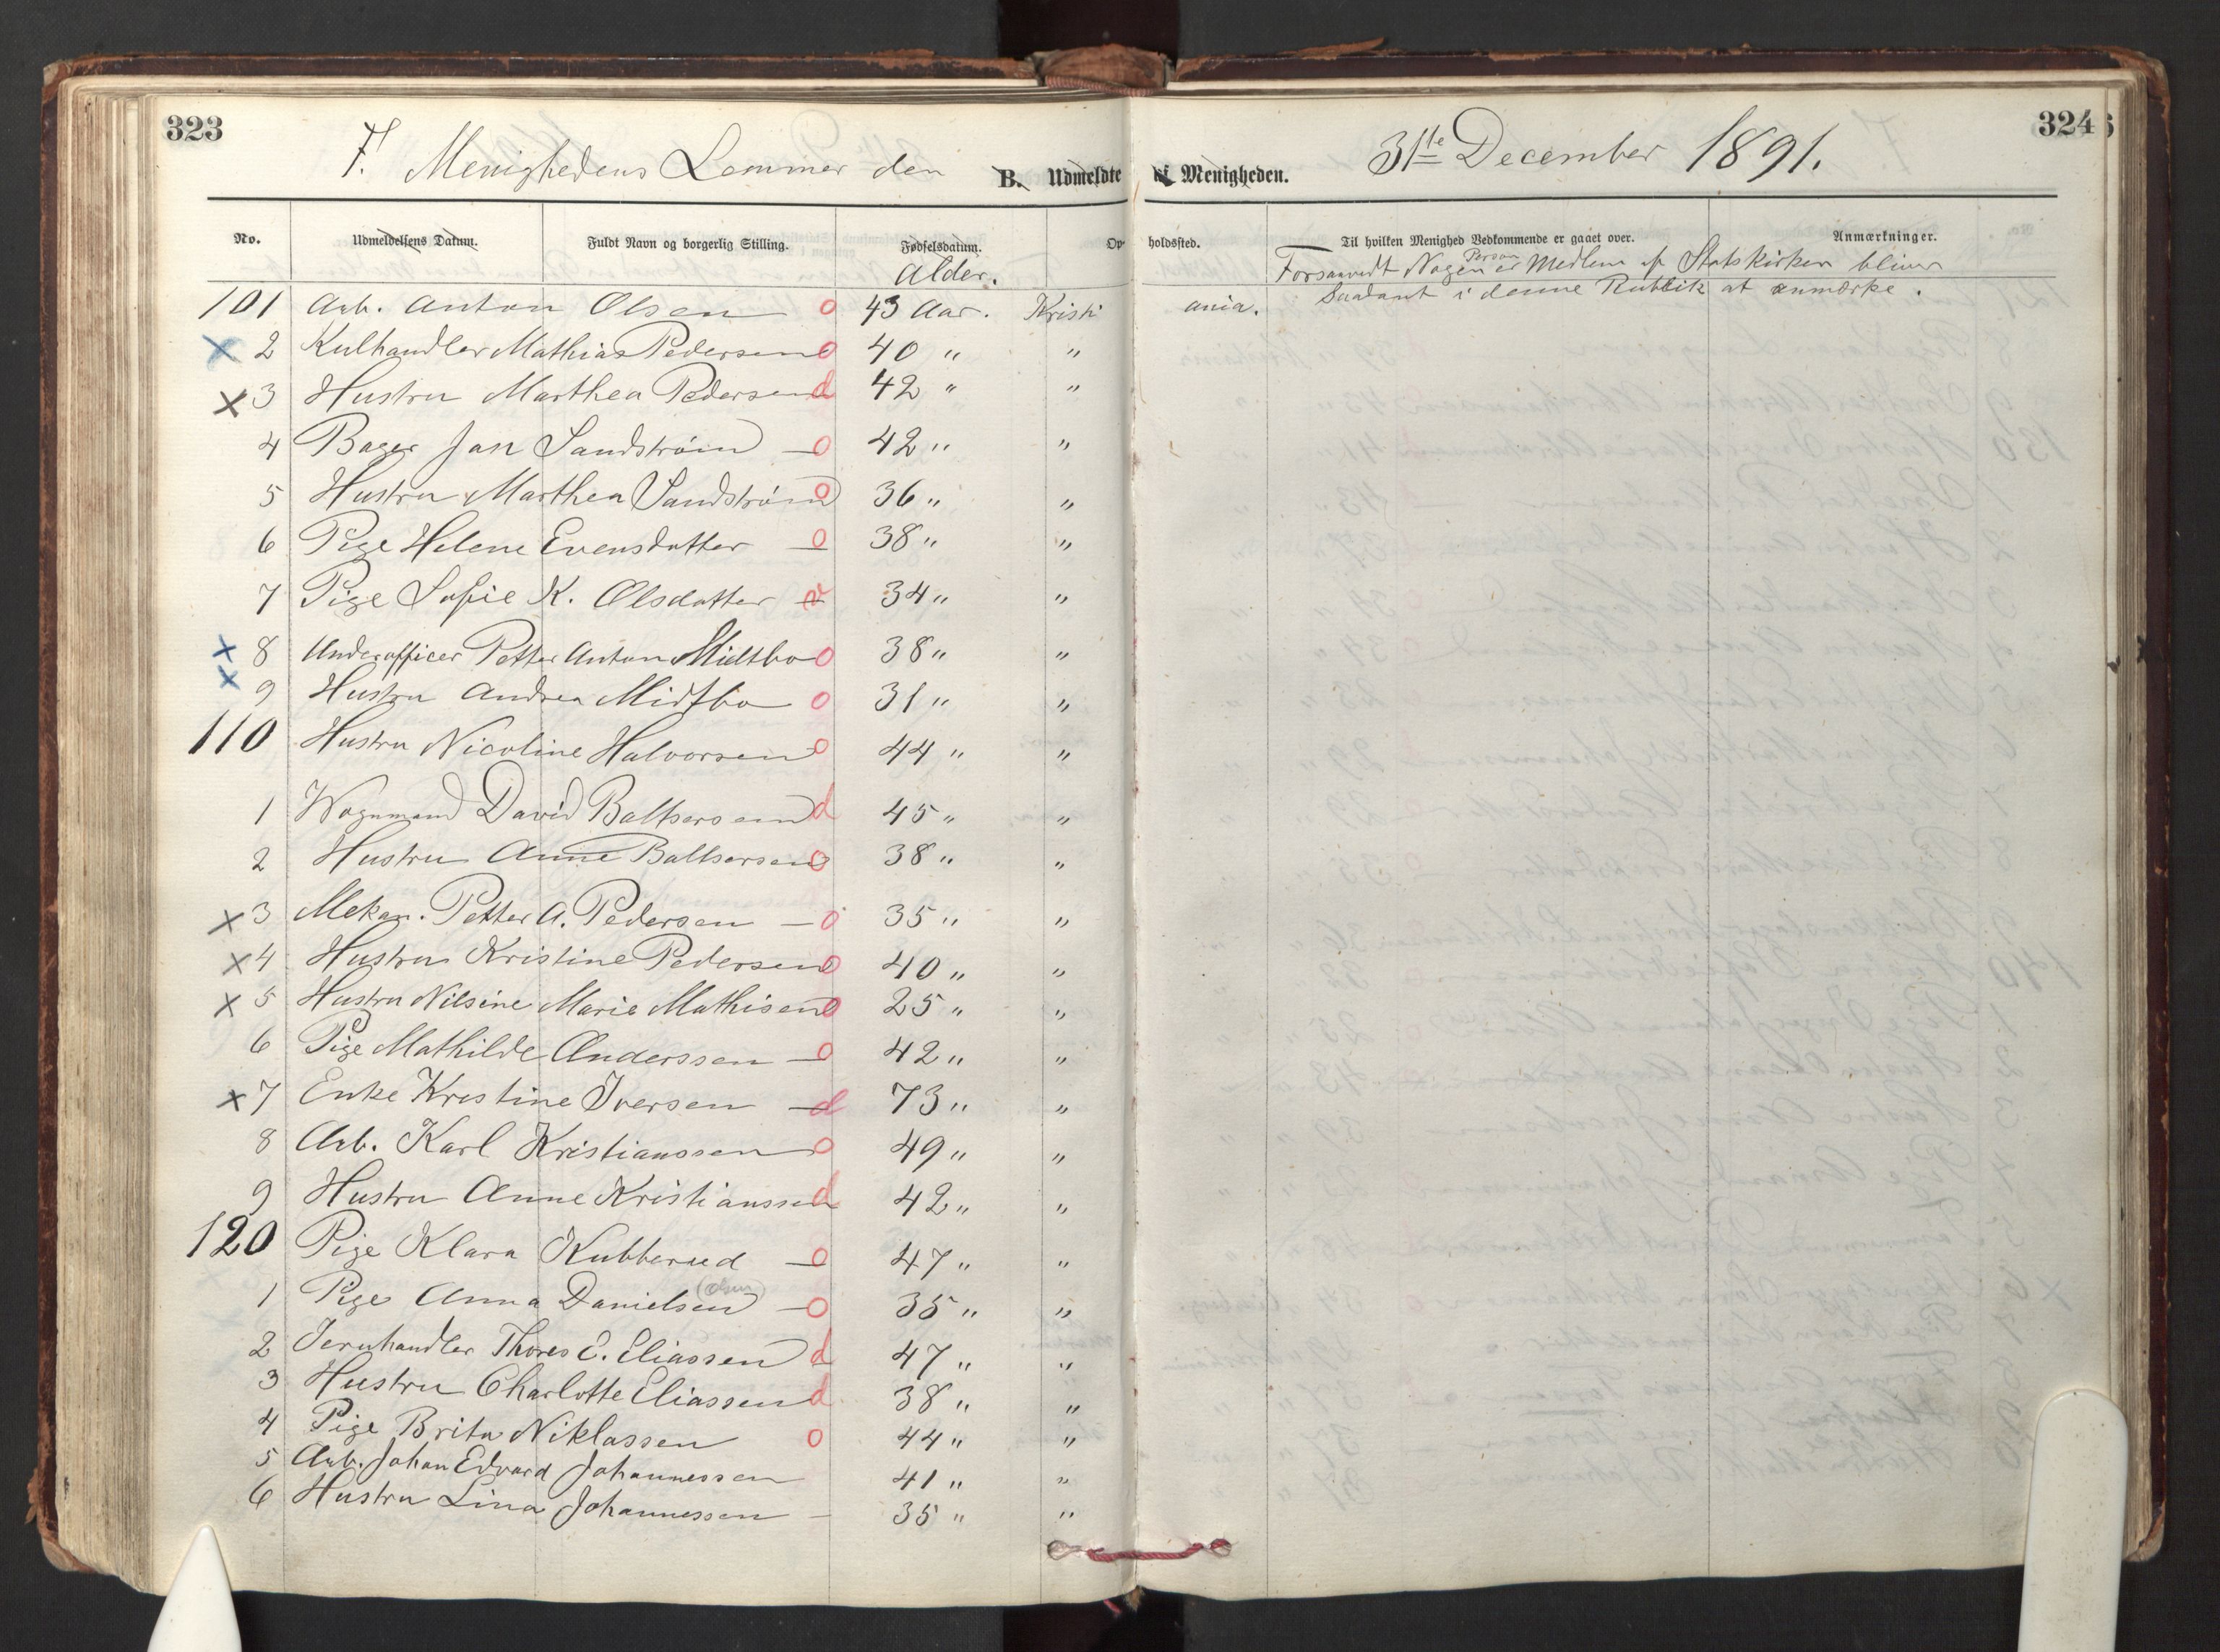 323
324
F. Menighedens Lemmer den 31te December 1891.
B. Udmeldte af Menigheden.
No. Udmeldelsens Datum. Fuldt Navn og borgerlig Stilling. Fødselsdatum. Op holdssted. Til hvilken Menighed Vedkommende er gaaet over. Anmærkninger.
Alder.
Forsaavidt Nogen Person er Medlem af Statskirken bliver
Saadant i denne Rubrik at anmærke.
101 Arb. Anton Olsen o 43 Aar. Kristi ania.
x 2 Kulhandler Mathias Pedersen o 40 " "
x 3 Hustru Marthea Pedersen d 42 " "
4 Bager Jan Sandstrøm — o 42 " "
5 Hustru Marthea Sandstrøm o 36 " "
6 Pige Helene Evensdatter — o 38 " "
7 Pige Sofie K. Olsdatter — 34 " "
x 8 Underofficer Petter Anton Midtbo o 38 " "
x 9 Hustru Andrea Midtbo o 31 " "
110 Hustru Nicoline Halvorsen o 44 " "
1 Vognmand David Baltsersen d 45 " "
2 Hustru Anne Baltsersen o 38 " "
x 3 Mekan. Petter A. Pedersen — o 35 " "
x 4 Hustru Kristine Pedersen o 40 " "
x 5 Hustru Nilsine Marie Mathisen o 25 " "
6 Pige Mathilde Anderssen — o 42 " "
x 7 Enke Kristine Iversen — d 73 " "
8 Arb. Karl Kristianssen o 49 " "
9 Hustru Anne Kristianssen d 42 " "
120 Pige Klara Kubberud — o 47 " "
1 Pige Anna Danielsen (Olsen) — o 35 " "
2 Jernhandler Thores E. Eliassen d 47 " "
3 Hustru Charlotte Eliassen d 38 " "
4 Pige Brita Niklassen o 44 " "
5 Arb. Johan Edvard Johannessen 41 " "
6 Hustru Lina Johannessen — 35 " "